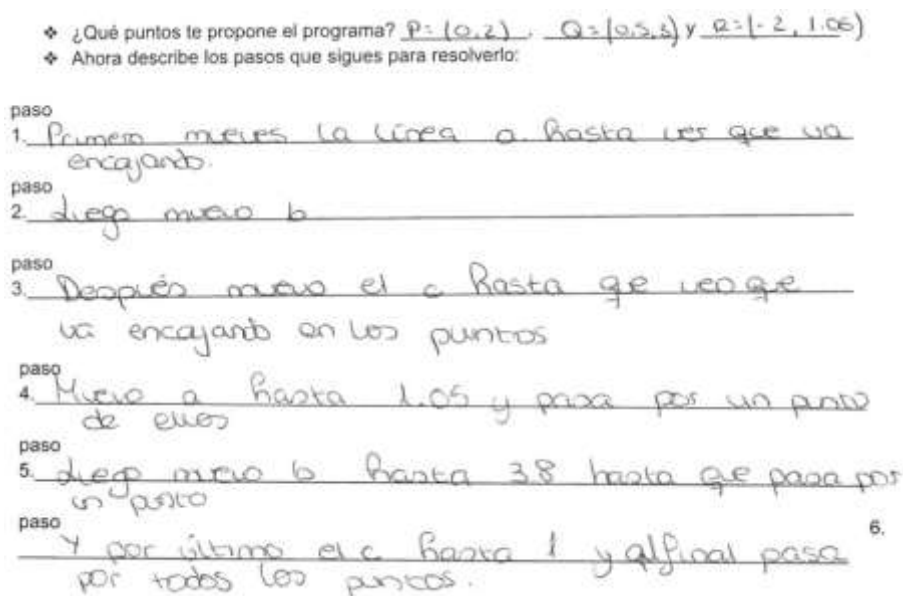 ❖ ¿Qué puntos te propone el programa? P=(0,2) . Q=(0,5,3) y R=(-2, 1.06)
❖ Ahora describe los pasos que sigues para resolverlo:
paso
1. Primero mueves la línea a hasta ver que va
encajando.
paso
2. Luego muevo b
paso
3. Después muevo el c hasta qe veo qe
va encajando en los puntos
paso
4. Muevo a hasta 1.05 y pasa por un punto
de ellos
paso
5. Luego muevo b hasta 3.8 hasta qe pasa por
un punto
paso 6.
Y por último el c hasta 1 y al final pasa
por todos los puntos.